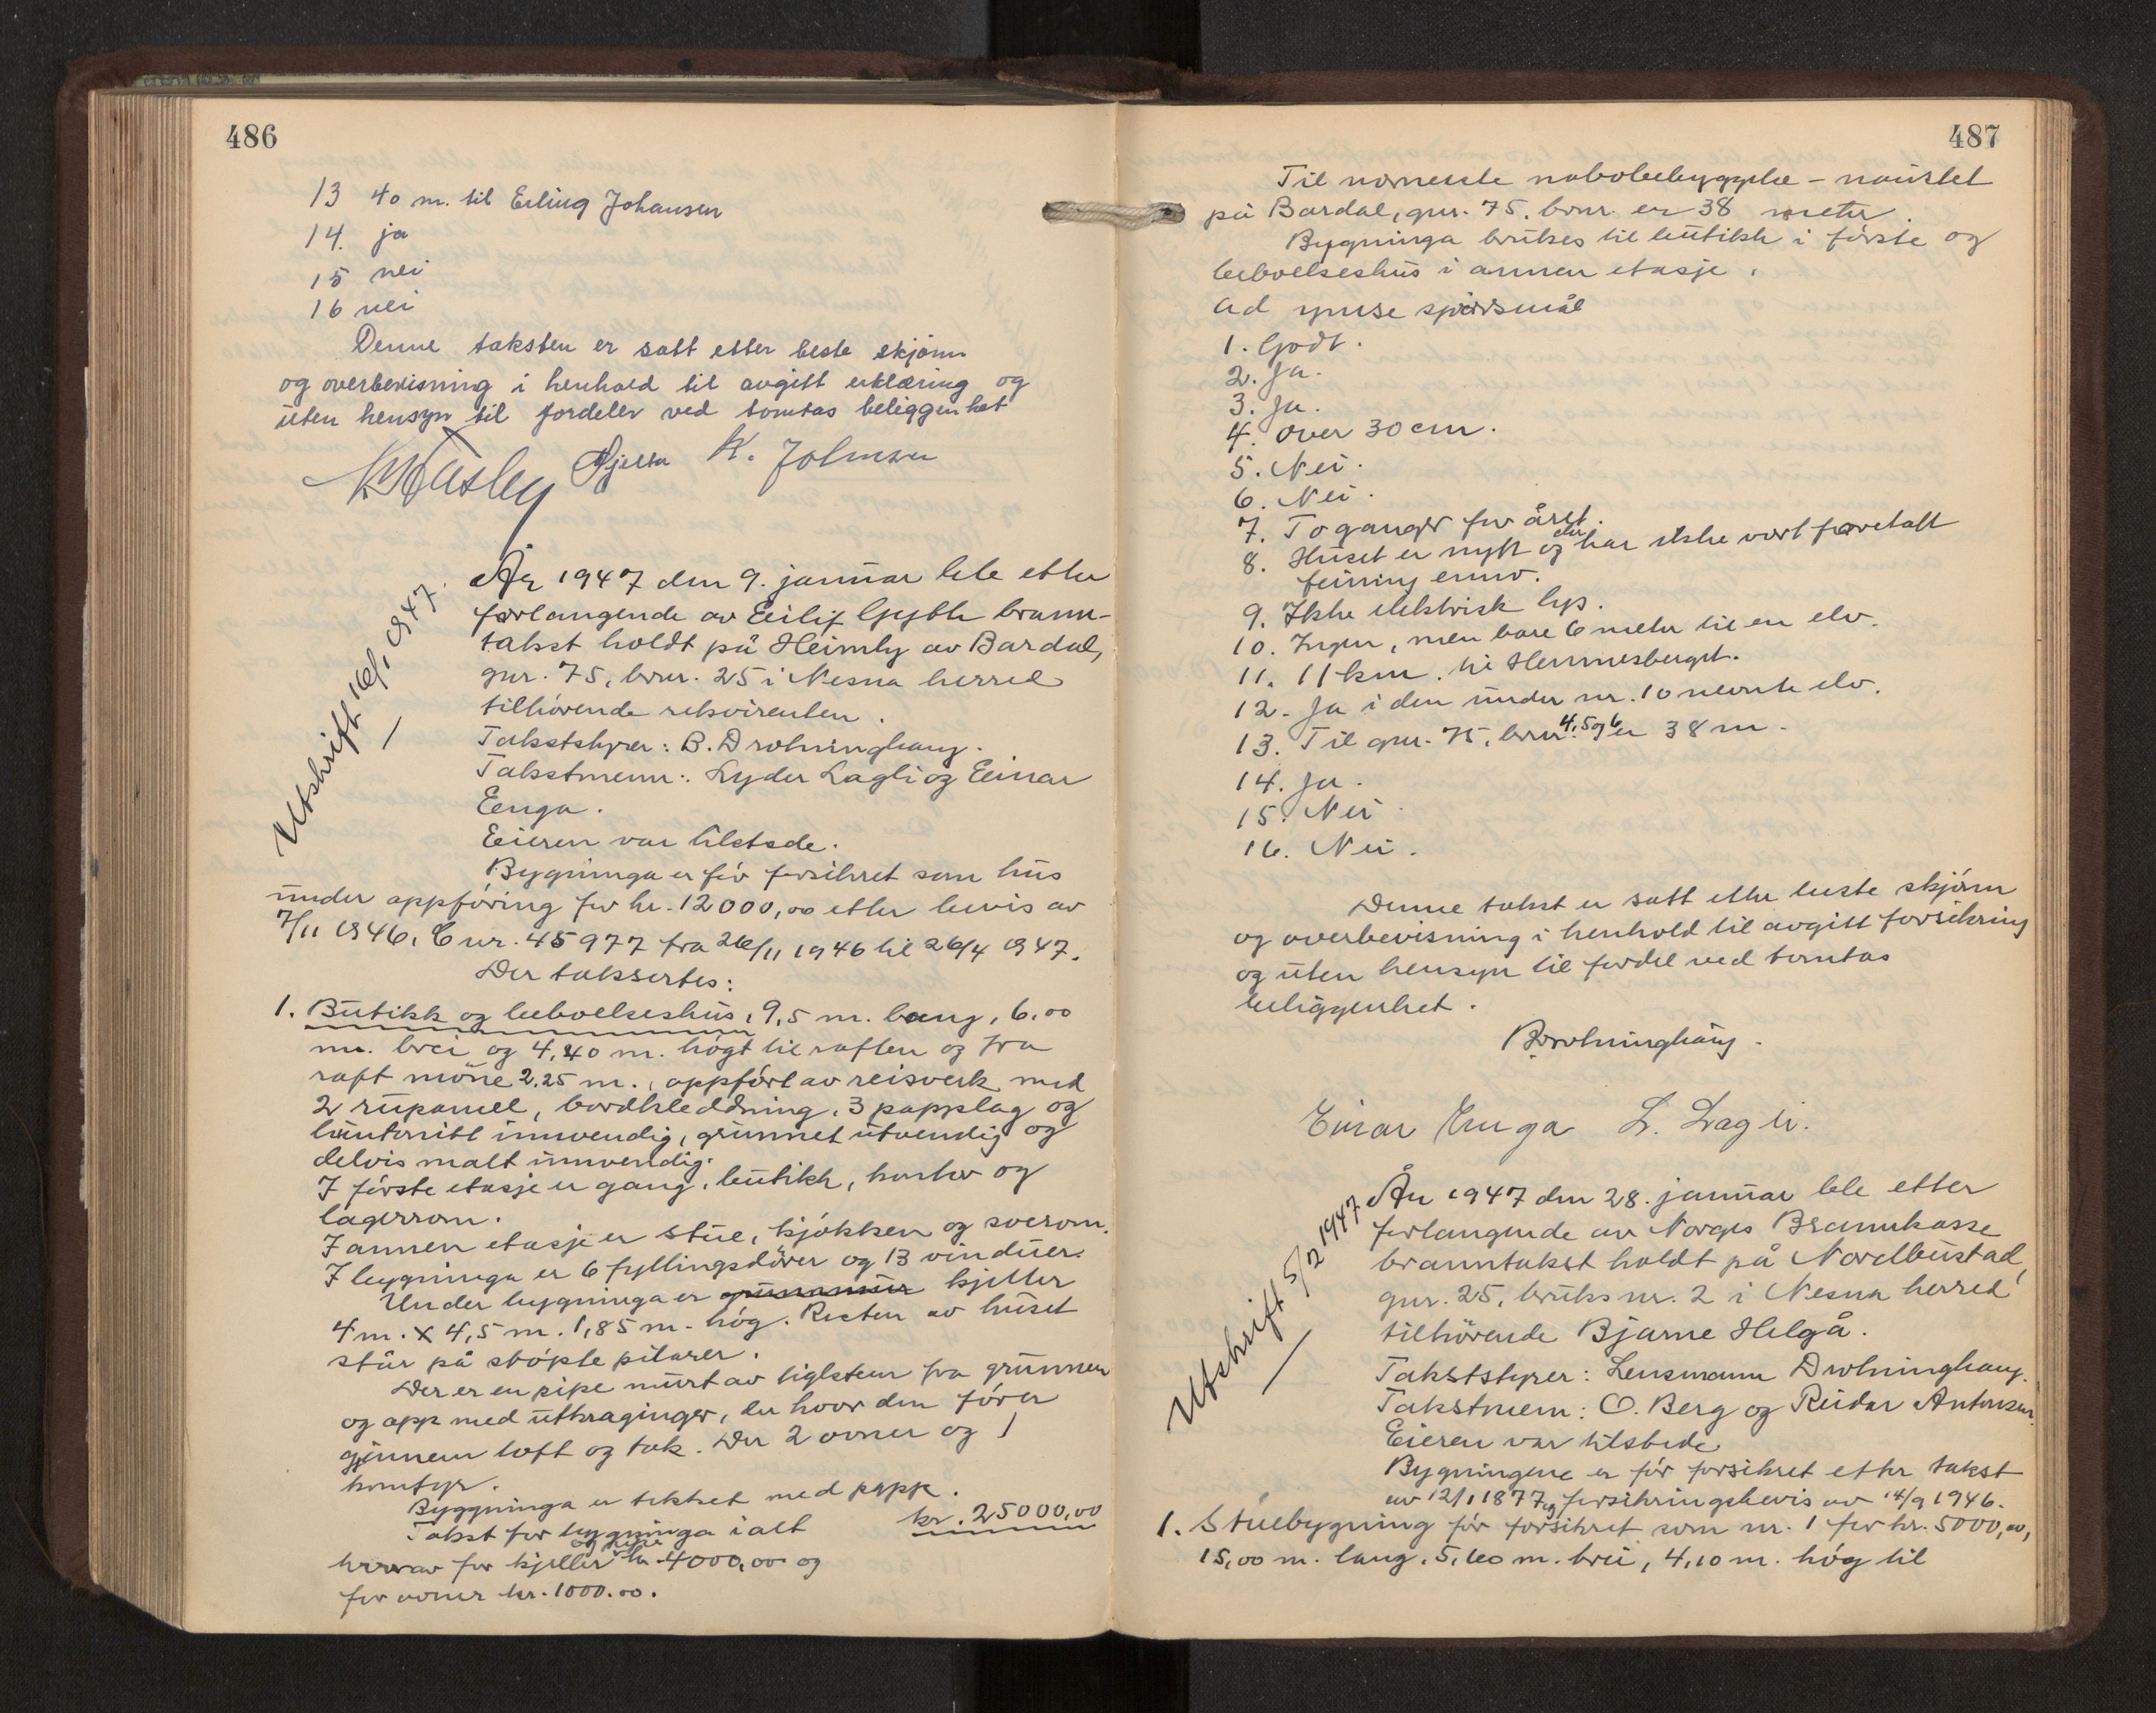 486
13 40 m. til Erling Johansen
14. ja
15 nei
16 nei
Denne taksten er satt etter beste skjønn
og overbevisning i henhold til avgitt erklæring og
uten hensyn til fordeler ved tomtas beliggenhet
Hjelta K. Johnsen
Utskrift 16/1 1947.
År 1947 den 9. januar ble etter
forlangende av Eilif Gybth brann-
takst holdt på Heimly av Bardal,
gnr. 75, brnr. 25 i Nesna herred
tilhørende rekvirenten.
Takststyrer: B. Drotninghaug.
Takstmenn: Lyder Lagli og Einar
Enga.
Eieren var tilstede.
Bygninga er før forsikret som hus
under oppføring for kr. 12000,00 etter bevis av
7/11 1946, C nr. 45977 fra 26/11 1946 til 26/4 1947.
Der takseres:
1. Butikk og beboelseshus, 9,5 m. lang, 6,00
m. brei og 4,40 m. høgt til raften og fra
raft møne 2,25 m., oppført av reisverk med
2 rupanel, bordkledning, 3 papplag og
huntonitt innvendig, grunnet utvendig og
delvis malt innvendig.
I første etasje er gang, butikk, kontor og
lagerrom.
I annen etasje er stue, kjøkken og soverom.
I bygninga er 6 fyllingsdører og 13 vinduer.
Under bygninga er grunnmur kjeller
4 m. x 4,5 m. 1,85 m. høg. Resten av huset
står på støpte pilarer.
Der er en pipe murt av teglsten fra grunnen
og opp med utkraginger, der hvor den fører
gjennem loft og tak. Der 2 ovner og 1
komfyr.
Byggninga er tekket med papp.
Takst for bygninga i alt kr. 25000,00
hvorav for kjeller og pipe kr. 4000,00 og
for ovner kr. 1000.00.
487
Til nærmeste nabobebyggelse – naustet
på Bardal, gnr. 75, brnr. er 38 meter.
Bygninga brukes til butikk i første og
beboelseshus i annen etasje.
Ad ymse spørsmål
1. Godt.
2. Ja.
3. Ja.
4. Over 30 cm.
5. Nei.
6. Nei.
7. To ganger for året.
8. Huset er nytt og der har ikke vært foretatt
feiing ennø.
9. Ikke elektrisk lys.
10. Ingen, men bare 6 meter til en elv.
11. 11 km. til Hemnesberget.
12. Ja i den under nr. 10 nevnte elv.
13. Til gnr. 75, brnr. 4, 5 og 6 er 38 m.
14. Ja.
15. Nei
16. Nei.
Denne takst er satt etter beste skjønn
og overbevisning i henhold til avgitt forsikring
og uten hensyn til fordel ved tomtas
beliggenhet.
BDrotninghaug.
Einar Enga L. Lagli.
Utskrift 5/2 1947
År 1947 den 28. januar ble etter
forlangende av Norges Brannkasse
branntakst holdt på Nordbustad,
gnr. 25, bruksnr. 2 i Nesna herred
tilhørende Bjarne Helgå.
Takststyrer: Lensmann Drotninghaug.
Takstmenn: O. Berg og Reidar Antonsen.
Eieren var tilstede
Bygningene er før forsikret etter takst
av 12/1 1877 og forsikringsbevis av 14/9 1946.
1. Stuebygning før forsikret som nr. 1 for kr. 5000,00,
15,00 m. lang, 5,60 m. brei, 4,10 m. høg til